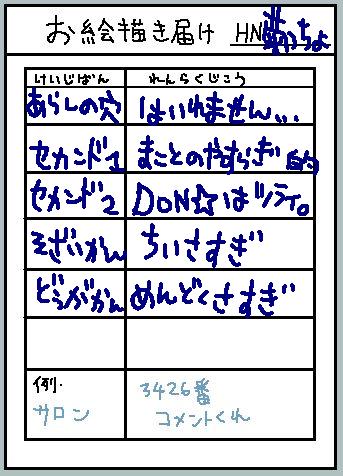 お絵描き届け HN 茸っちょ
けいじばん れんらくじこう
あらしの穴 はいれません...
セカンド1 まことのやすらぎ 的
セメンド2 DON☆はツライ。
そざいかん ちいさすぎ
どうがかん めんどくさすぎ
例. 3426番
サロン コメントくれ